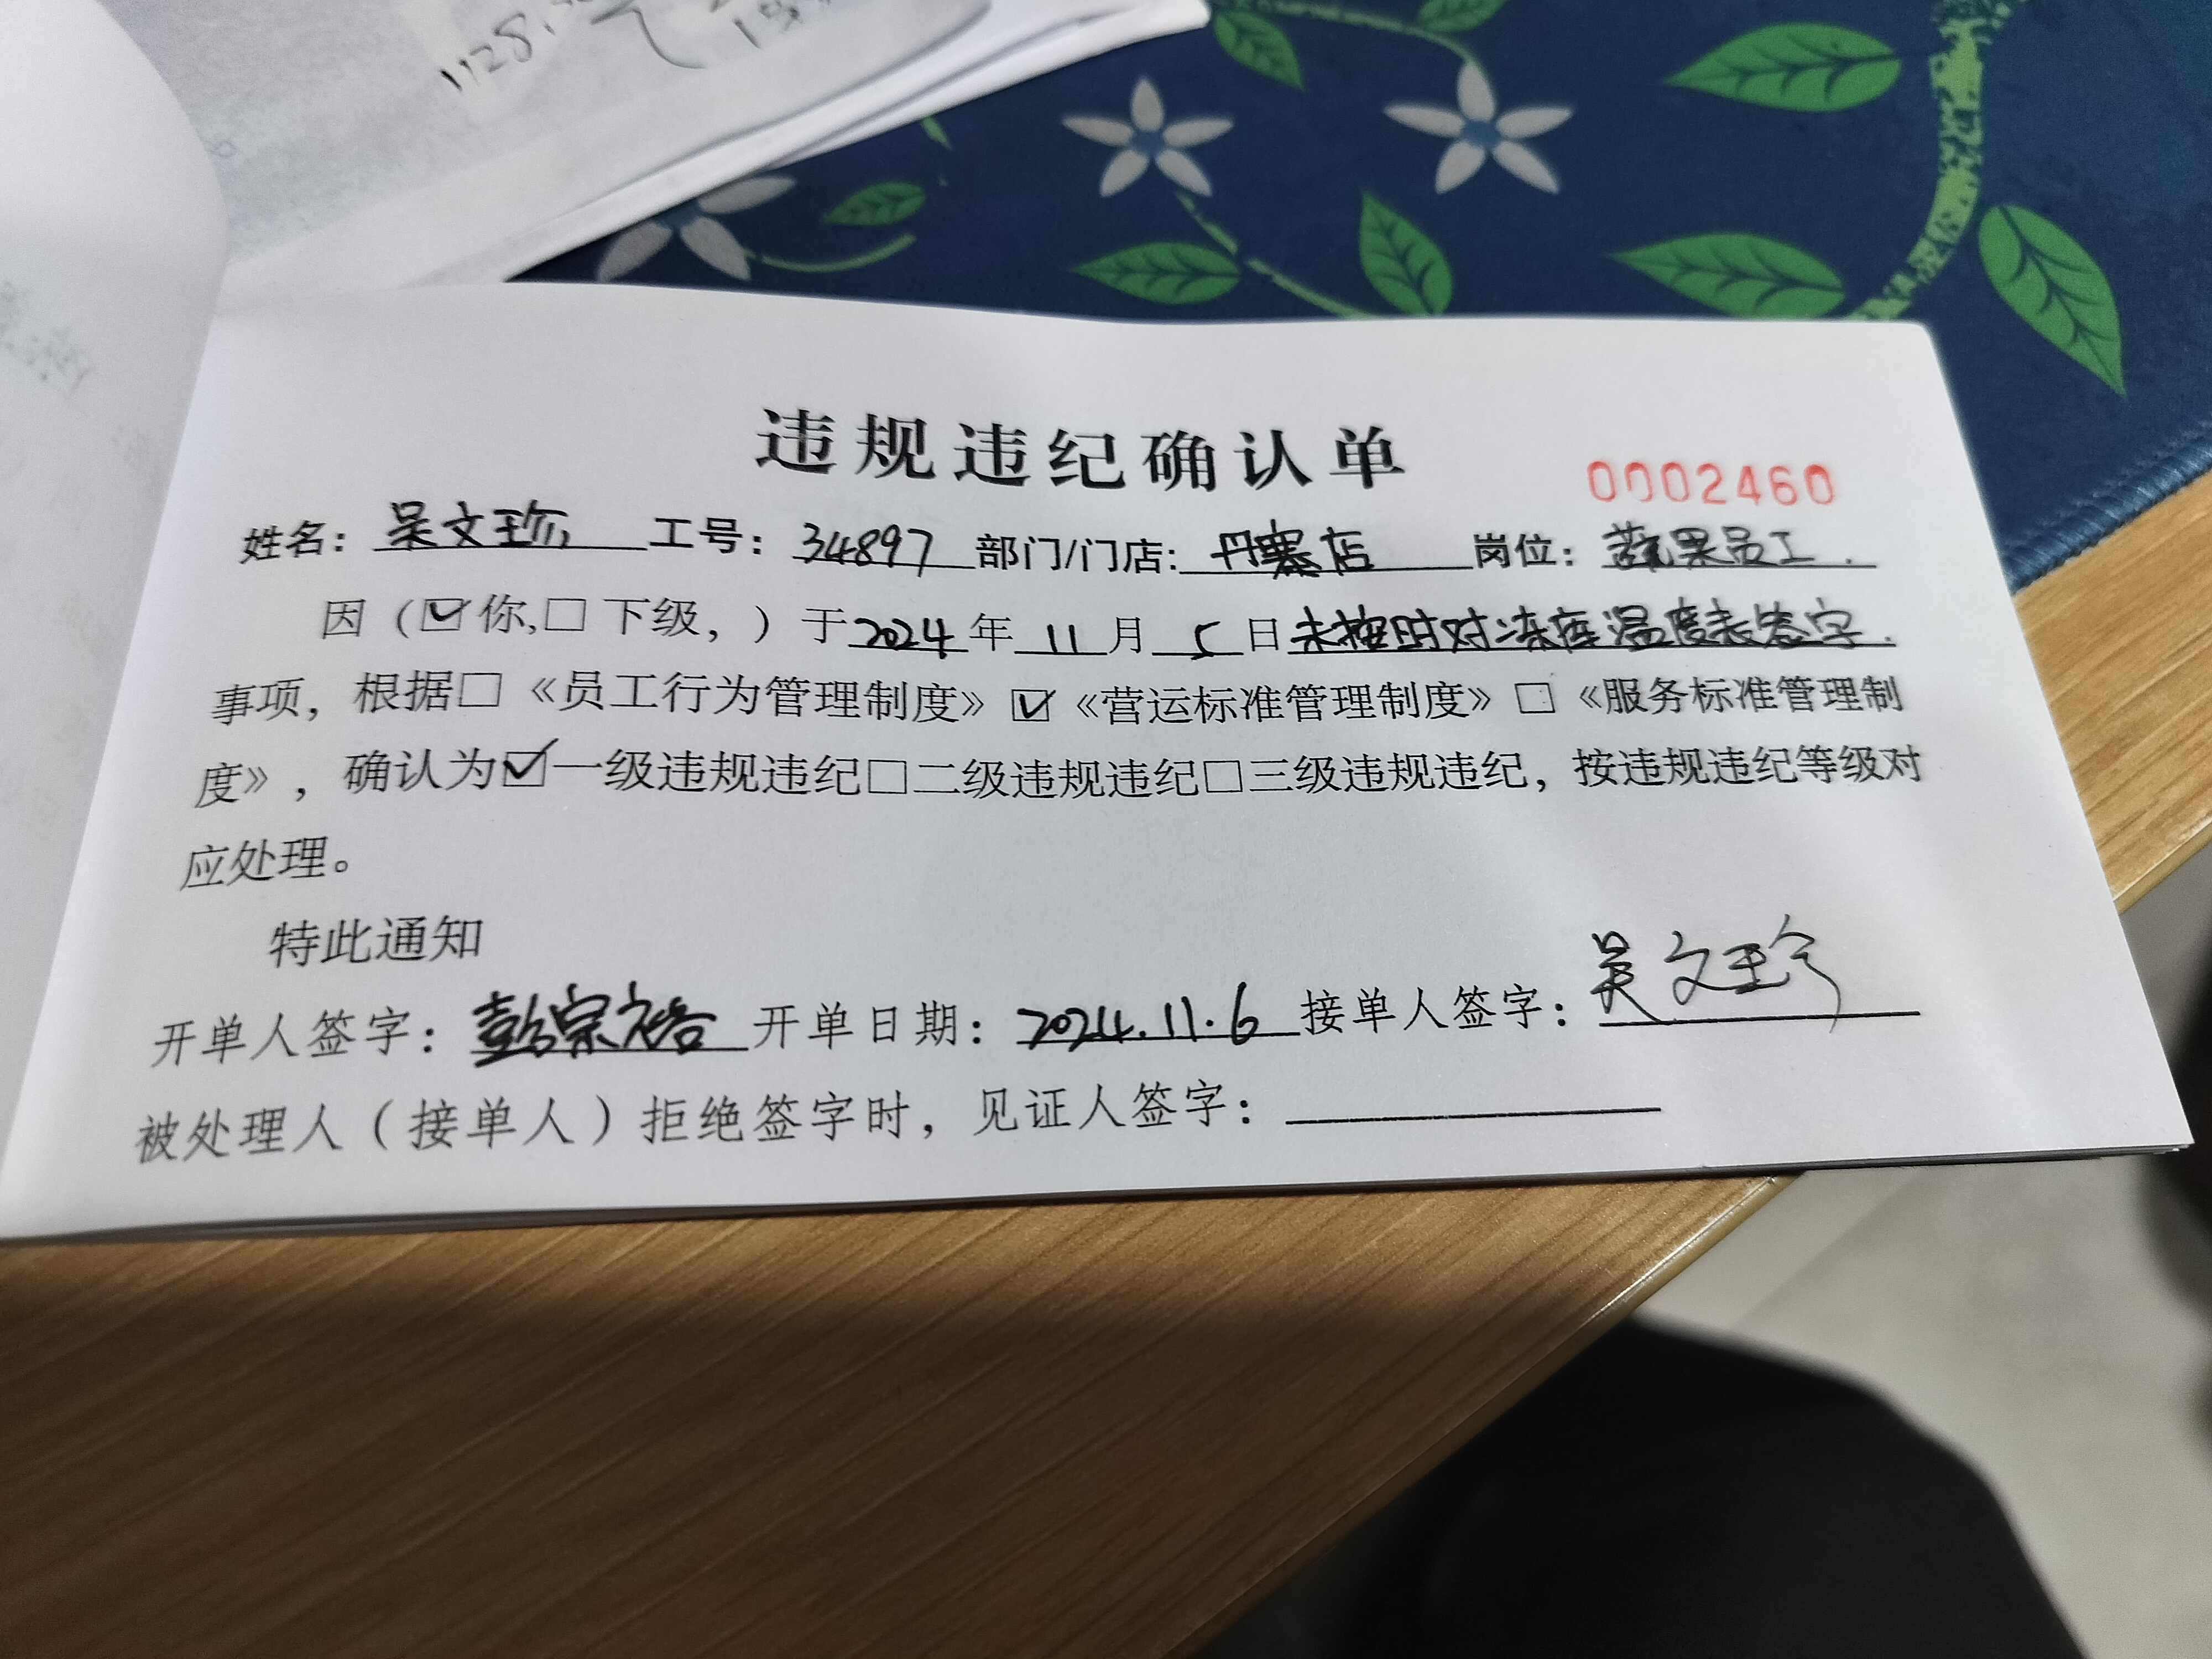 1128.
违规违纪确认单
0002460
姓名：吴文珍 工号：34897 部门/门店：丹寨店 岗位：蔬果员工.
因（☑你,□下级，）于2024年11月5日未按时对冻库温度表签字.
事项，根据□《员工行为管理制度》☑《营运标准管理制度》□《服务标准管理制
度》，确认为☑一级违规违纪□二级违规违纪□三级违规违纪，按违规违纪等级对
应处理。
特此通知
开单人签字：彭宗裕 开单日期：2024.11.6 接单人签字：吴文珍
被处理人（接单人）拒绝签字时，见证人签字：